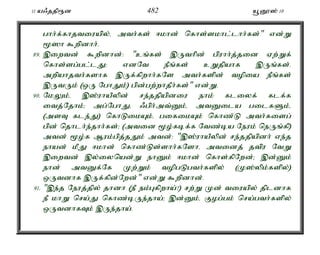 11 யஃததிரூன 482 யூனூஸ் 10
பார்க்காதவரையில், அவர்கள் ஈமான் கொள்ளமாட்டார்கள்" என்று
மூஸா கூறினார்.
89. இறைவன் கூறினான்: "உங்கள் இருவரின் பிரார்த்தனை ஏற்றுக்
கொள்ளப்பட்டது; எனவே நீங்கள் உறுதியாக இருங்கள்.
அறியாதவர்களாக இருக்கிறார்களே அவர்களின் வழியை நீங்கள்
இருவரும் (ஒரு போதும்) பின்பற்றாதீர்கள்" என்று.
90. மேலும், இஸ்ராயீலின் சந்ததியினரை நாம் கடலைக் கடக்க
வைத்தோம்; அப்போது, ஃபிர்அவ்னும், அவனுடைய படைகளும்,
(அளவு கடந்து) கொடுமையும், பகைமையும் கொண்டு அவர்களைப்
பின் தொடர்ந்தார்கள்; (அவனை மூழ்கடிக்க வேண்டிய நேரம் நெருங்கி)
அவன் மூழ்க ஆரம்பித்ததும் அவன்: "இஸ்ராயீலின் சந்ததியினர் எந்த
நாயன் மீது ஈமான் கொண்டுள்ளார்களோ, அவனைத் தவிர வேறு
இறைவன் இல்லையென்று நானும் ஈமான் கொள்கிறேன்; இன்னும்
நான் அவனுக்கே முற்றும் வழிபடுபவர்களில் (முஸ்லிம்களில்)
ஒருவனாக இருக்கின்றேன்" என்று கூறினான்.
91. "இந்த நேரத்தில் தானா (நீ நம்புகிறாய்)! சற்று முன் வரையில் திடனாக
நீ மாறு செய்து கொண்டிருந்தாய்; இன்னும், குழப்பம் செய்பவர்களில்
ஒருவனாகவும் இருந்தாய்.